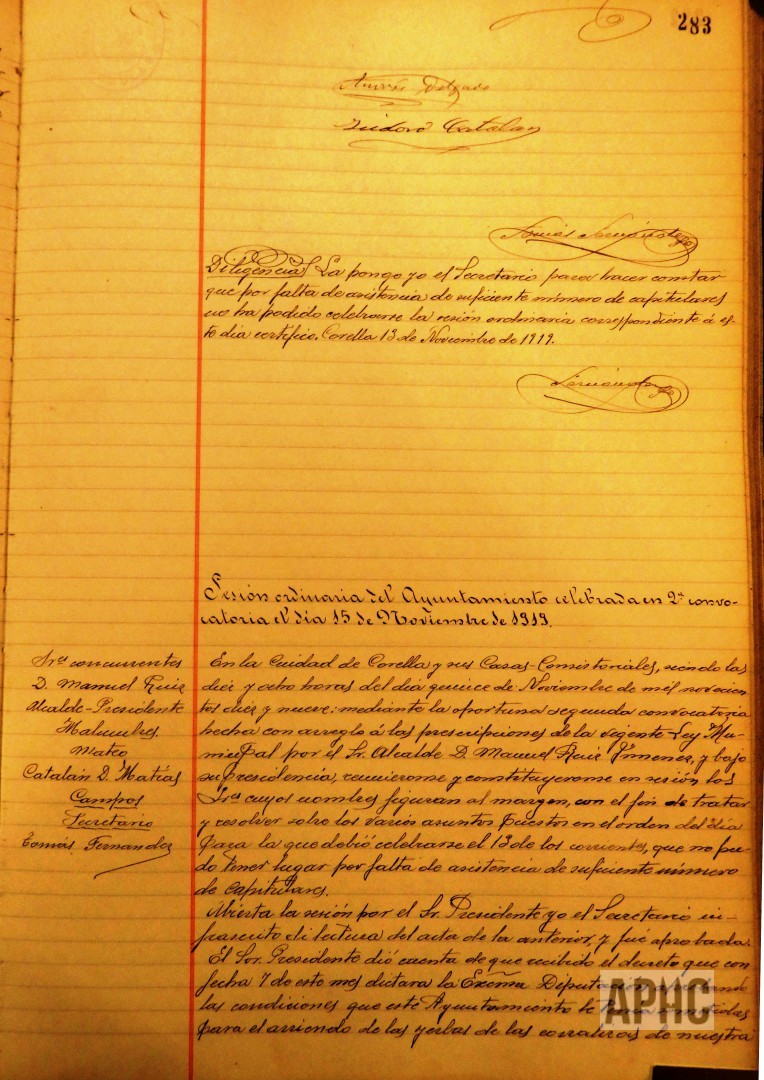 283
Andrés Delgado
Isidoro Catalan
Tomás Fernández
Diligencia La pongo yo el Secretario para hacer constar
que por falta de asistencia de suficiente número de capitulares
no ha podido celebrarse la sesión ordinaria correspondiente á es-
te dia certifico. Corella 13 de Noviembre de 1919.
Fernández
Sesión ordinaria del Ayuntamiento celebrada en 2ª convo-
catoria el día 15 de Noviembre de 1919.
Sres concurrentes
D. Manuel Ruiz
Alcalde-Presidente
Malumbres
Mateo
Catalán D. Matías
Campos
Secretario
Tomás Fernandez
En la Ciudad de Corella y sus Casas-Consistoriales, siendo las
diez y ocho horas del dia quince de Noviembre de mil novecien
tos diez y nueve: mediante la oportuna segunda convocatoria
hecha con arreglo á las prescripciones de la vegente Ley Mu-
nicipal por el Sr. Alcalde D. Manuel Ruiz Jimenez, y bajo
su presidencia, reunieronse y constituyeronse en sesión los
Sres cuyos nombres figuran al margen, con el fin de tratar
y resolver sobre los varios asuntos puestos en el orden del dia
para la que debió celebrarse el 13 de los corrientes, que no pu-
do tener lugar por falta de asistencia de suficiente número
de capitulares.
Abierta la sesión por el Sr. Presidente yo el Secretario in-
frascrito di lectura del acta de la anterior, y fué aprobada.
El Sor. Presidente dió cuenta de que recibido el decreto que con
fecha 7 de este mes dictara la Excma Diputacion
las condiciones que este Ayuntamiento le
para el arriendo de las yerbas de las corralizas de nuestra
APHC